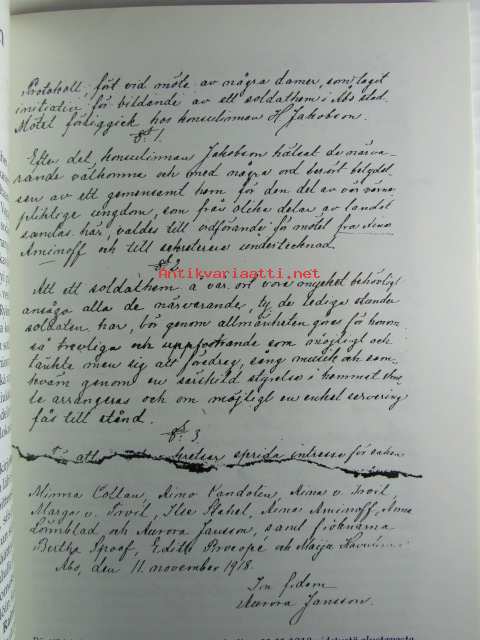 Protokoll, fört vid möte av några damer, som tagit
initiativ för bildande av ett soldathem i Åbo stad.
Mötet försiggick hos konsulinnan H Jakobson.
§ 1.
Efter det konsulinnan Jakobson hälsat de närva-
rande välkomna och med några ord berört betydel-
sen av ett gemensamt hem för den del av vår värne-
pliktige ungdom, som från olika delar av landet
samlas här, valdes till ordförande för mötet fru Aina
Aminoff och till sekreterare undertecknad.
Antikvariaatti.net
§ 2.
Att ett soldathem å vår ort vore mycket behövligt
ansågo alla de närvarande, ty de lediga stunder
soldaten har, bör genom allmänheten göras för honom
så trevliga och uppfostrande som möjligt och
tänkte man sig att föredrag, sång musik och sam-
kväm genom en särskild styrelse i hemmet skul-
le arrangeras och om möjligt en enkel servering
fås till stånd.
§ 3.
att kretsar sprida intresse för saken
Minna Collan, Aino Randolen, Aina v. Troil,
Marga v. Troil, Ilse Stahel, Aina Aminoff, Anna
Lönnblad och Aurora Jansson, samt fröknarna
Bertha Spoof, Edith Procopé och Maija
Åbo, den 11. november 1918.
In fidem
Aurora Jansson.